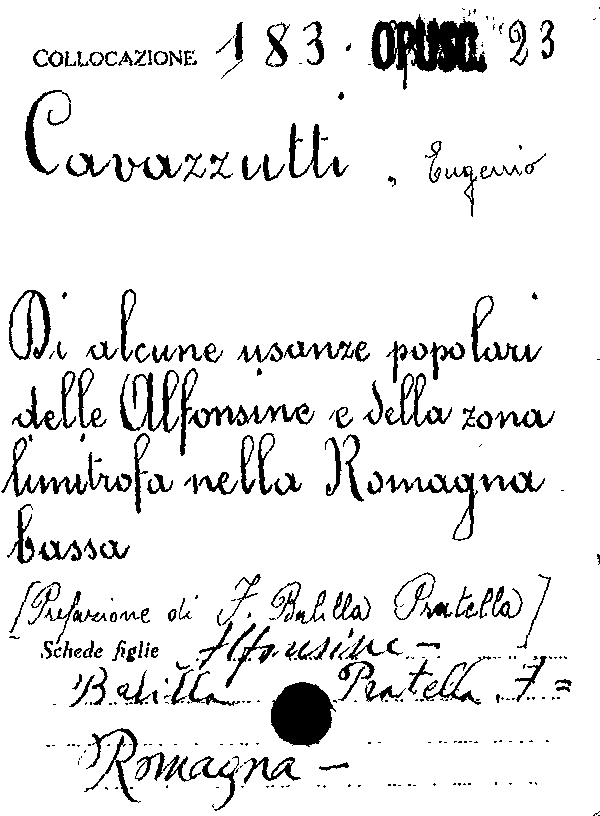 COLLOCAZIONE 183. OPUSC. 23
Cavazzutti, Eugenio
Di alcune usanze popolari
delle Alfonsine e della zona
limitrofa nella Romagna
bassa
[Prefazione di F. Balilla Pratella]
Schede figlie Alfonsine -
Balilla Pratella F =
Romagna -